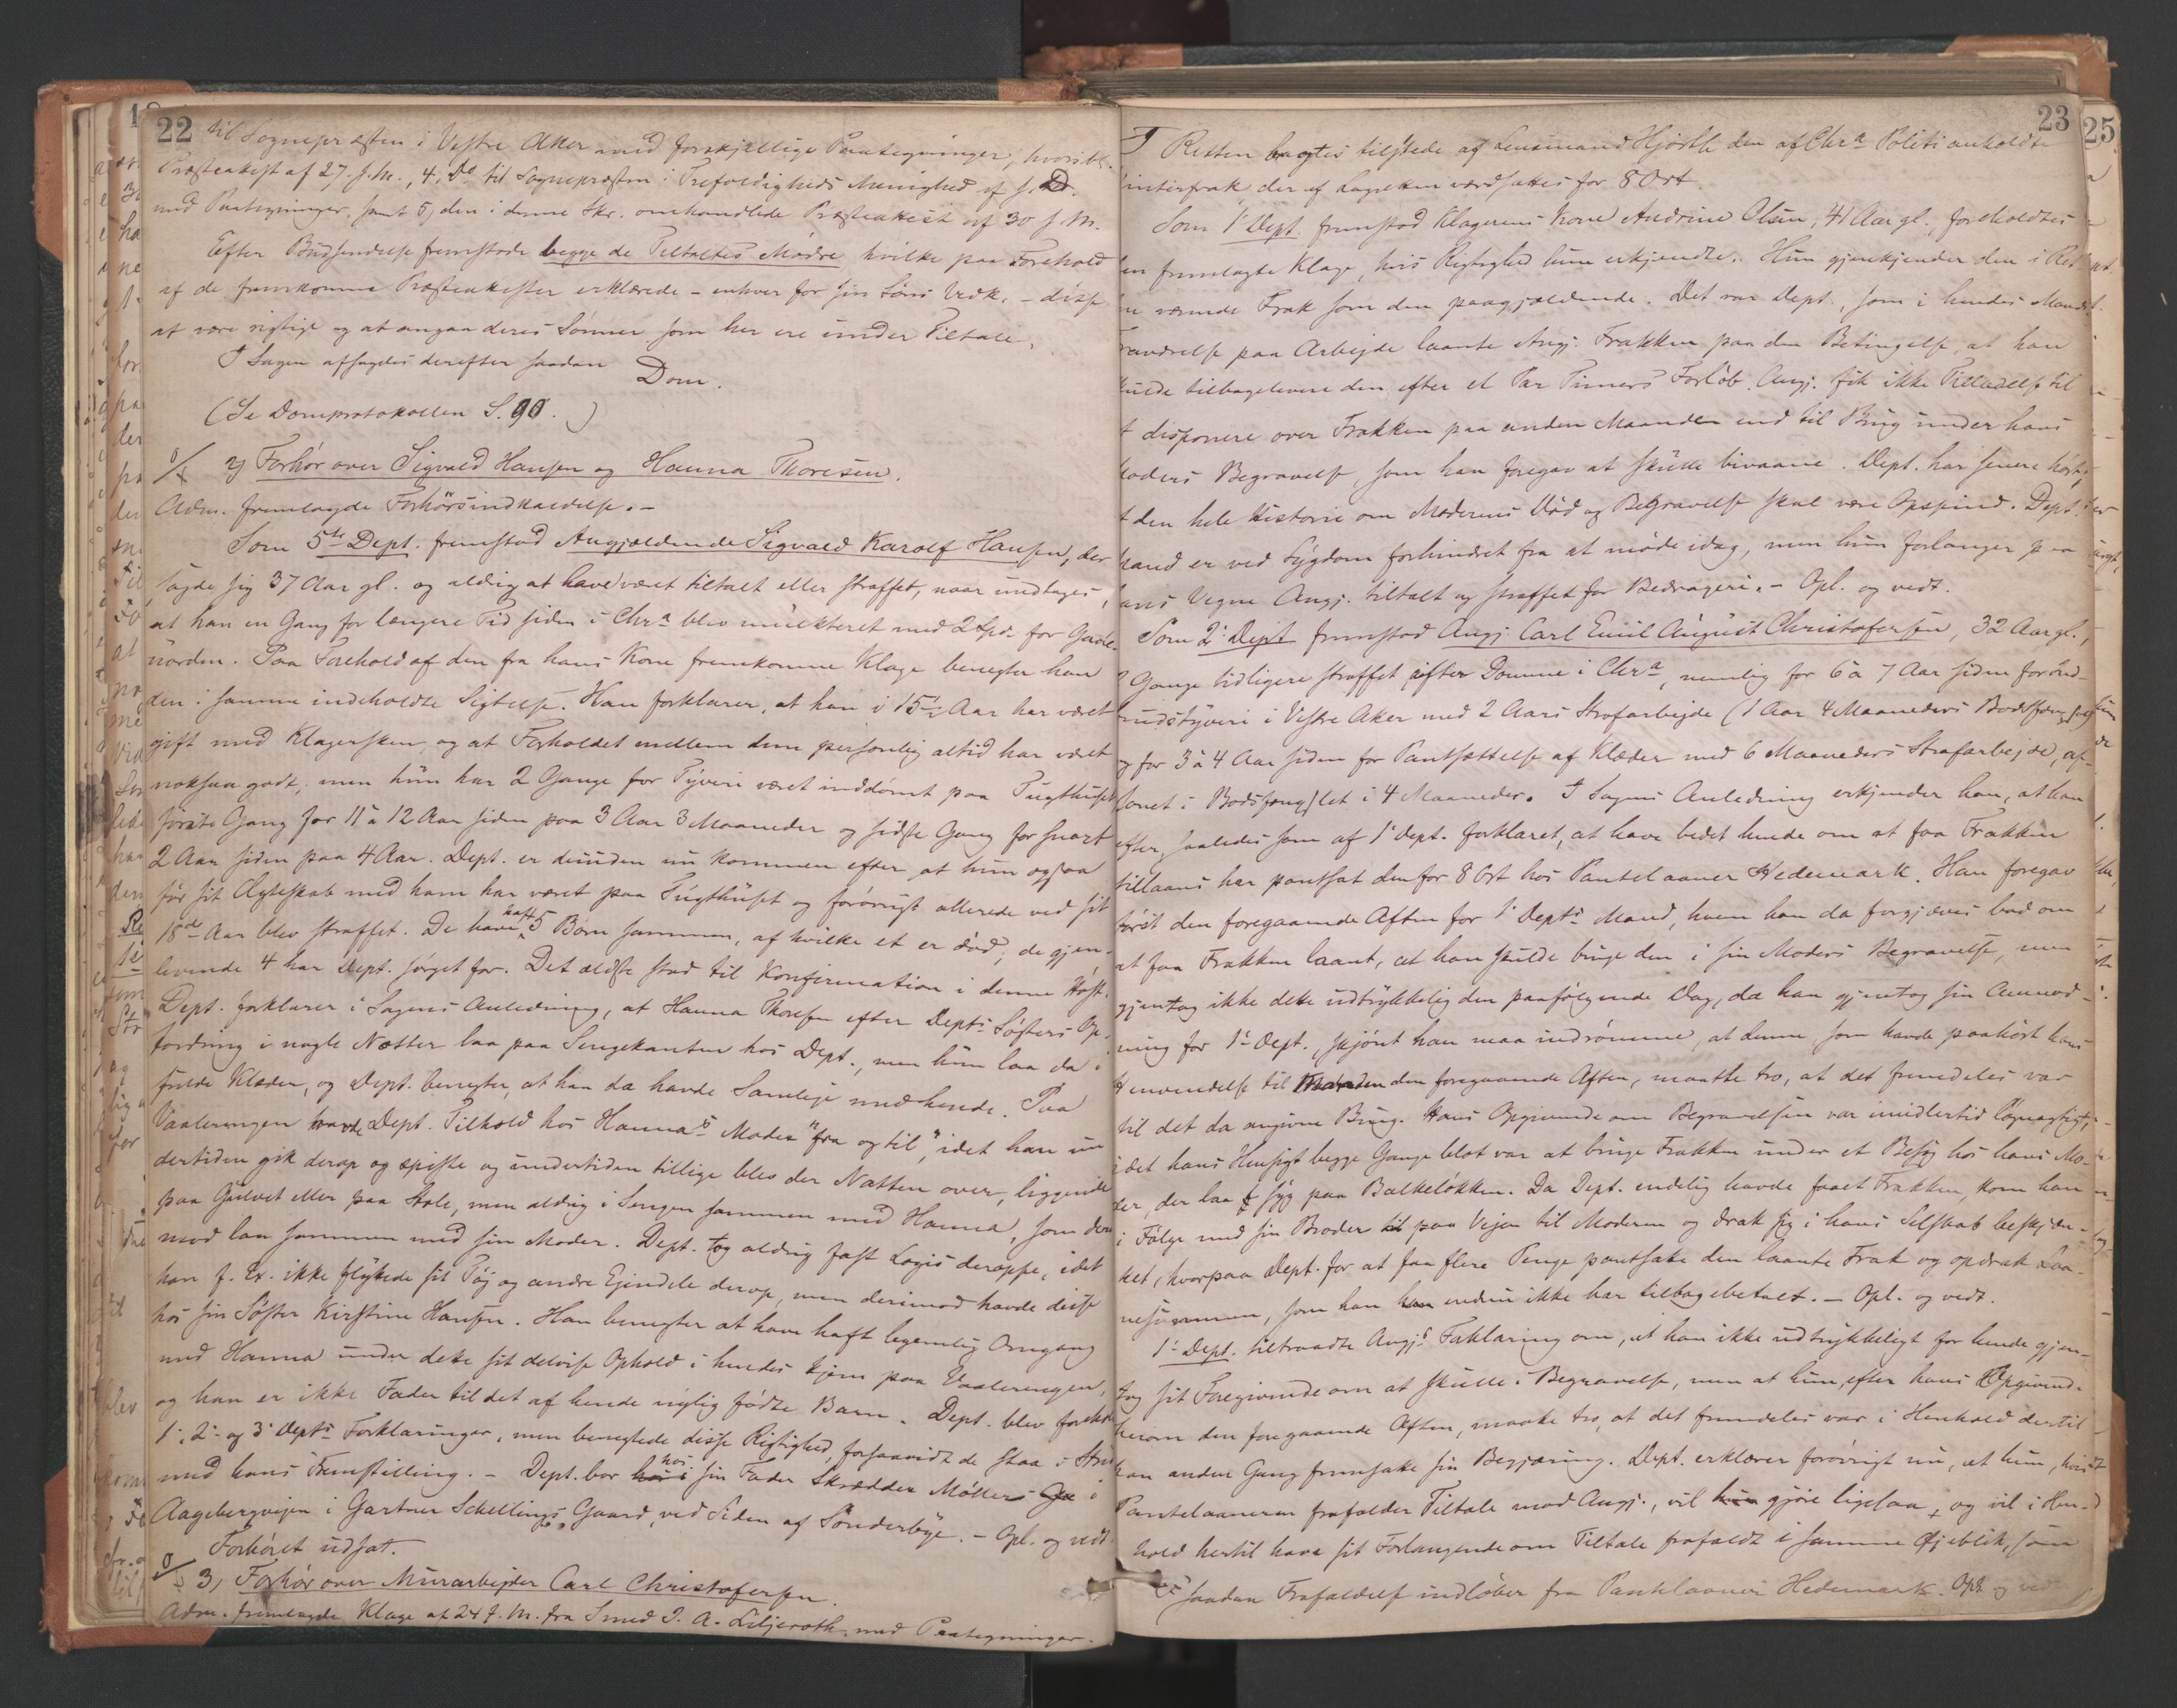 22
til Sognepræsten i Vestre Aker med forskjellige Paategninger, hvoriblt.
Præsteattest af 27. f. M., 4, Do til Sognepræsten i Trefoldigheds Menighed af s. D.
med Paategninger, samt 5, den i denne Skr. omhandlede Præsteattest af 30 f. M.
Efter Budsendelse fremstode begge de Tiltaltes Mødre hvilke paa Forehold
af de fremkomne Præsteattester erklærede – enhver for sin Søns Vedk. – disse
at være rigtige og at angaa deres Sønner som her ere under Tiltale.
I Sagen afsagdes derefter saadan
Dom.
(Se Domprotokollen S. 90.)
2) Forhør over Sigvald Hansen og Hanna Thoresen.
Adm. fremlagde Forhørsindkaldelse. –
Som 5te Dept. fremstod Angjældende Sigvald Karolf Hansen, der
sagde sig 37 Aar gl. og aldrig at have været tiltalt eller straffet, naar undtages,
at han en Gang for længere Tid siden i Chra blev mulkteret med 2 Spd. for Gadeu-
norden. Paa Forehold af den fra hans Kone fremkomne Klage benegter han
den i samme indeholdte Sigtelse. Han forklarer, at han i 15 Aar har været
gift med Klagersken, og at Forholdet mellem dem personlig altid har været
noksaa godt, men hun har 2 Gange for Tyveri været inddømt paa Tugthuset
første Gang for 11 à 12 Aar siden paa 3 Aar 3 Maaneder og sidste Gang for snart
2 Aar siden paa 4 Aar. Dept. er desuden nu kommen efter, at hun ogsaa
før sit Ægteskab med ham har været paa Tugthuset og forøvrigt allerede ved sit
18de Aar blev straffet. De have haft 5 Børn sammen, af hvilke et er død; de gjen-
levende 4 har Dept. sørget for. Det ældste stod til Konfirmation i denne Høst.
Dept. forklarer i Sagens Anledning, at Hanna Thoresen efter Depts Søsters Op-
fordring i nogle Nætter laa paa Sengekanten hos Dept., men hun laa da i
fulde Klæder, og Dept. benegter, at han da havde Samleje med hende. Paa
Vaalerengen havde Dept. Tilhold hos Hannas Moder "fra og til", idet han un
dertiden gik derop og spiste og undertiden tillige blev der Natten over, liggende
paa Gulvet eller paa Stole, men aldrig i Sengen sammen med Hanna, som deri
mod laa sammen med sin Moder. Dept. tog aldrig fast Logis deroppe, idet
han f. Ex. ikke flyttede sit Tøj og andre Ejendele derop, men derimod havde disse
hos sin Søster Kirstine Hansen. Han benegter at have haft legemlig Omgang
med Hanna under dette sit delvise Ophold i hendes Hjem paa Vaalerengen,
og han er ikke Fader til det af hende nylig fødte Barn. Dept. blev foreholdt
1', 2' og 3' Depts Forklaringer, men benegtede disse Rigtighed, forsaavidt de staa i Strid
med hans Fremstilling. – Dept. bor hos sin Fader Skrædder Møller i
Aagebergvejen i Gartner Schellings Gaard, ved Siden af Sønderbye. – Opl. og vedt.
Forhøret udsat.
3, Forhør over Murarbejder Carl Christofersen.
Adm. fremlagde Klage af 24 f. M. fra Smed J. A. Liljeroth, med Paategninger.
23
I Retten bragtes tilstede af Lensmand Hjorth den af Chra Politi anholdte
interfrak, der af Lagretten værdsattes for 8 Ort.
Som 1' Dept. fremstod Klagerens Kone Andrine Olsen, 41 Aar gl., foreholdtes
en fremlagte Klage, hvis Rigtighed hun erkjendte. Hun gjenkjender den i Ret
ne værende Frak som den paagjældende. Det var Dept., som i hendes Mands
raværelse paa Arbejde laante Angj. Frakken paa den Betingelse, at han
ulde tilbagelevere den efter et Par Timers Forløb. Angj. fik ikke Tilladelse til
t disponere over Frakken paa anden Maade end til Brug under hans
oders Begravelse, som han foregav at skulle bivaane. Dept. har senere hørt,
t den hele Historie om Moderens Død og Begravelse skal være Opspind. Dept.
and er ved Sygdom forhindret fra at møde idag, men hun forlanger paa
ans Vegne Angj. tiltalt og straffet for Bedrageri. – Opl. og vedt.
Som 2' Dept fremstod Angj. Carl Emil August Christofersen, 32 Aar gl.,
2 Gange tidligere straffet efter Domme i Chra, nemlig for 6 à 7 Aar siden for Ind-
rudstyveri i Vestre Aker med 2 Aars Strafarbejde (1 Aar 4 Maaneders Bodsfængsel)
g for 3 à 4 Aar siden for Pantsættelse af Klæder med 6 Maaneders Strafarbejde, af-
sonet i Bodsfængslet i 4 Maaneder. I Sagens Anledning erkjender han, at han
efter, saaledes som af 1' Dept. forklaret, at have bedet hende om at faa Frakken
tillaans har pantsat den for 8 Ort hos Pantelaaner Hedemark. Han foregav
først den foregaaende Aften for 1' Depts Mand, hvem han da forgjæves bad om
at faa Frakken laant, at han skulde bruge den i sin Moders Begravelse, men
gjentog ikke dette udtrykkelig den paafølgende Dag, da han gjentog sin Anmod-
ning for 1' Dept., skjønt han maa indrømme, at denne, som havde paahørt hans
Henvendelse til Manden den foregaaende Aften, maatte tro, at det fremdeles var
til det da angivne Brug. Hans Opgivende om Begravelsen var imidlertid løgnagtigt,
idet hans Hensigt begge Gange blot var at bruge Frakken under et Besøg hos hans Mo-
der, der laa syg paa Balkeløkken. Da Dept. endelig havde faaet Frakken, kom han
i Følge med sin Broder paa Vejen til Moderen og drak sig i hans Selskab beskjæn-
ket, hvorpaa Dept. for at faa flere Penge pantsatte den laante Frak og opdrak Laa-
nesummen, som han endnu ikke har tilbagebetalt. – Opl. og vedt.
1' Dept. tiltraadte Angjs Forklaring om, at han ikke udtrykkeligt for hende gjen-
tog sit Foregivende om at skulle i Begravelse, men at hun, efter hans Opgivende
herom den foregaaende Aften, maatte tro, at det fremdeles var i Henhold dertil
han anden Gang fremsatte sin Begjæring. Dept. erklærer forøvrigt nu, at hun, hvis
Pantelaaneren frafalder Tiltale mod Angj., vil gjøre ligesaa, og vil i Hen-
hold hertil have sit Forlangende om Tiltale frafaldt i samme Øjeblik, som
saadan Frafaldelse indløber fra Pantelaaner Hedemark. Opl. og vedt
25